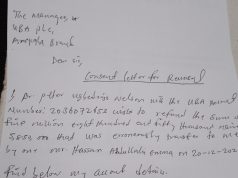 The Manager
UBA PLC,
Branch
Dear sir,
Consent letter for Reversal
I Dr peter nelson with the UBA Account
Number: wish to refund the sum of
five million eight hundred and fifty thousand naira
that was erroneously transfer to me
by one mr Hassan Abdullahi on 20-12-202
find below my account details.